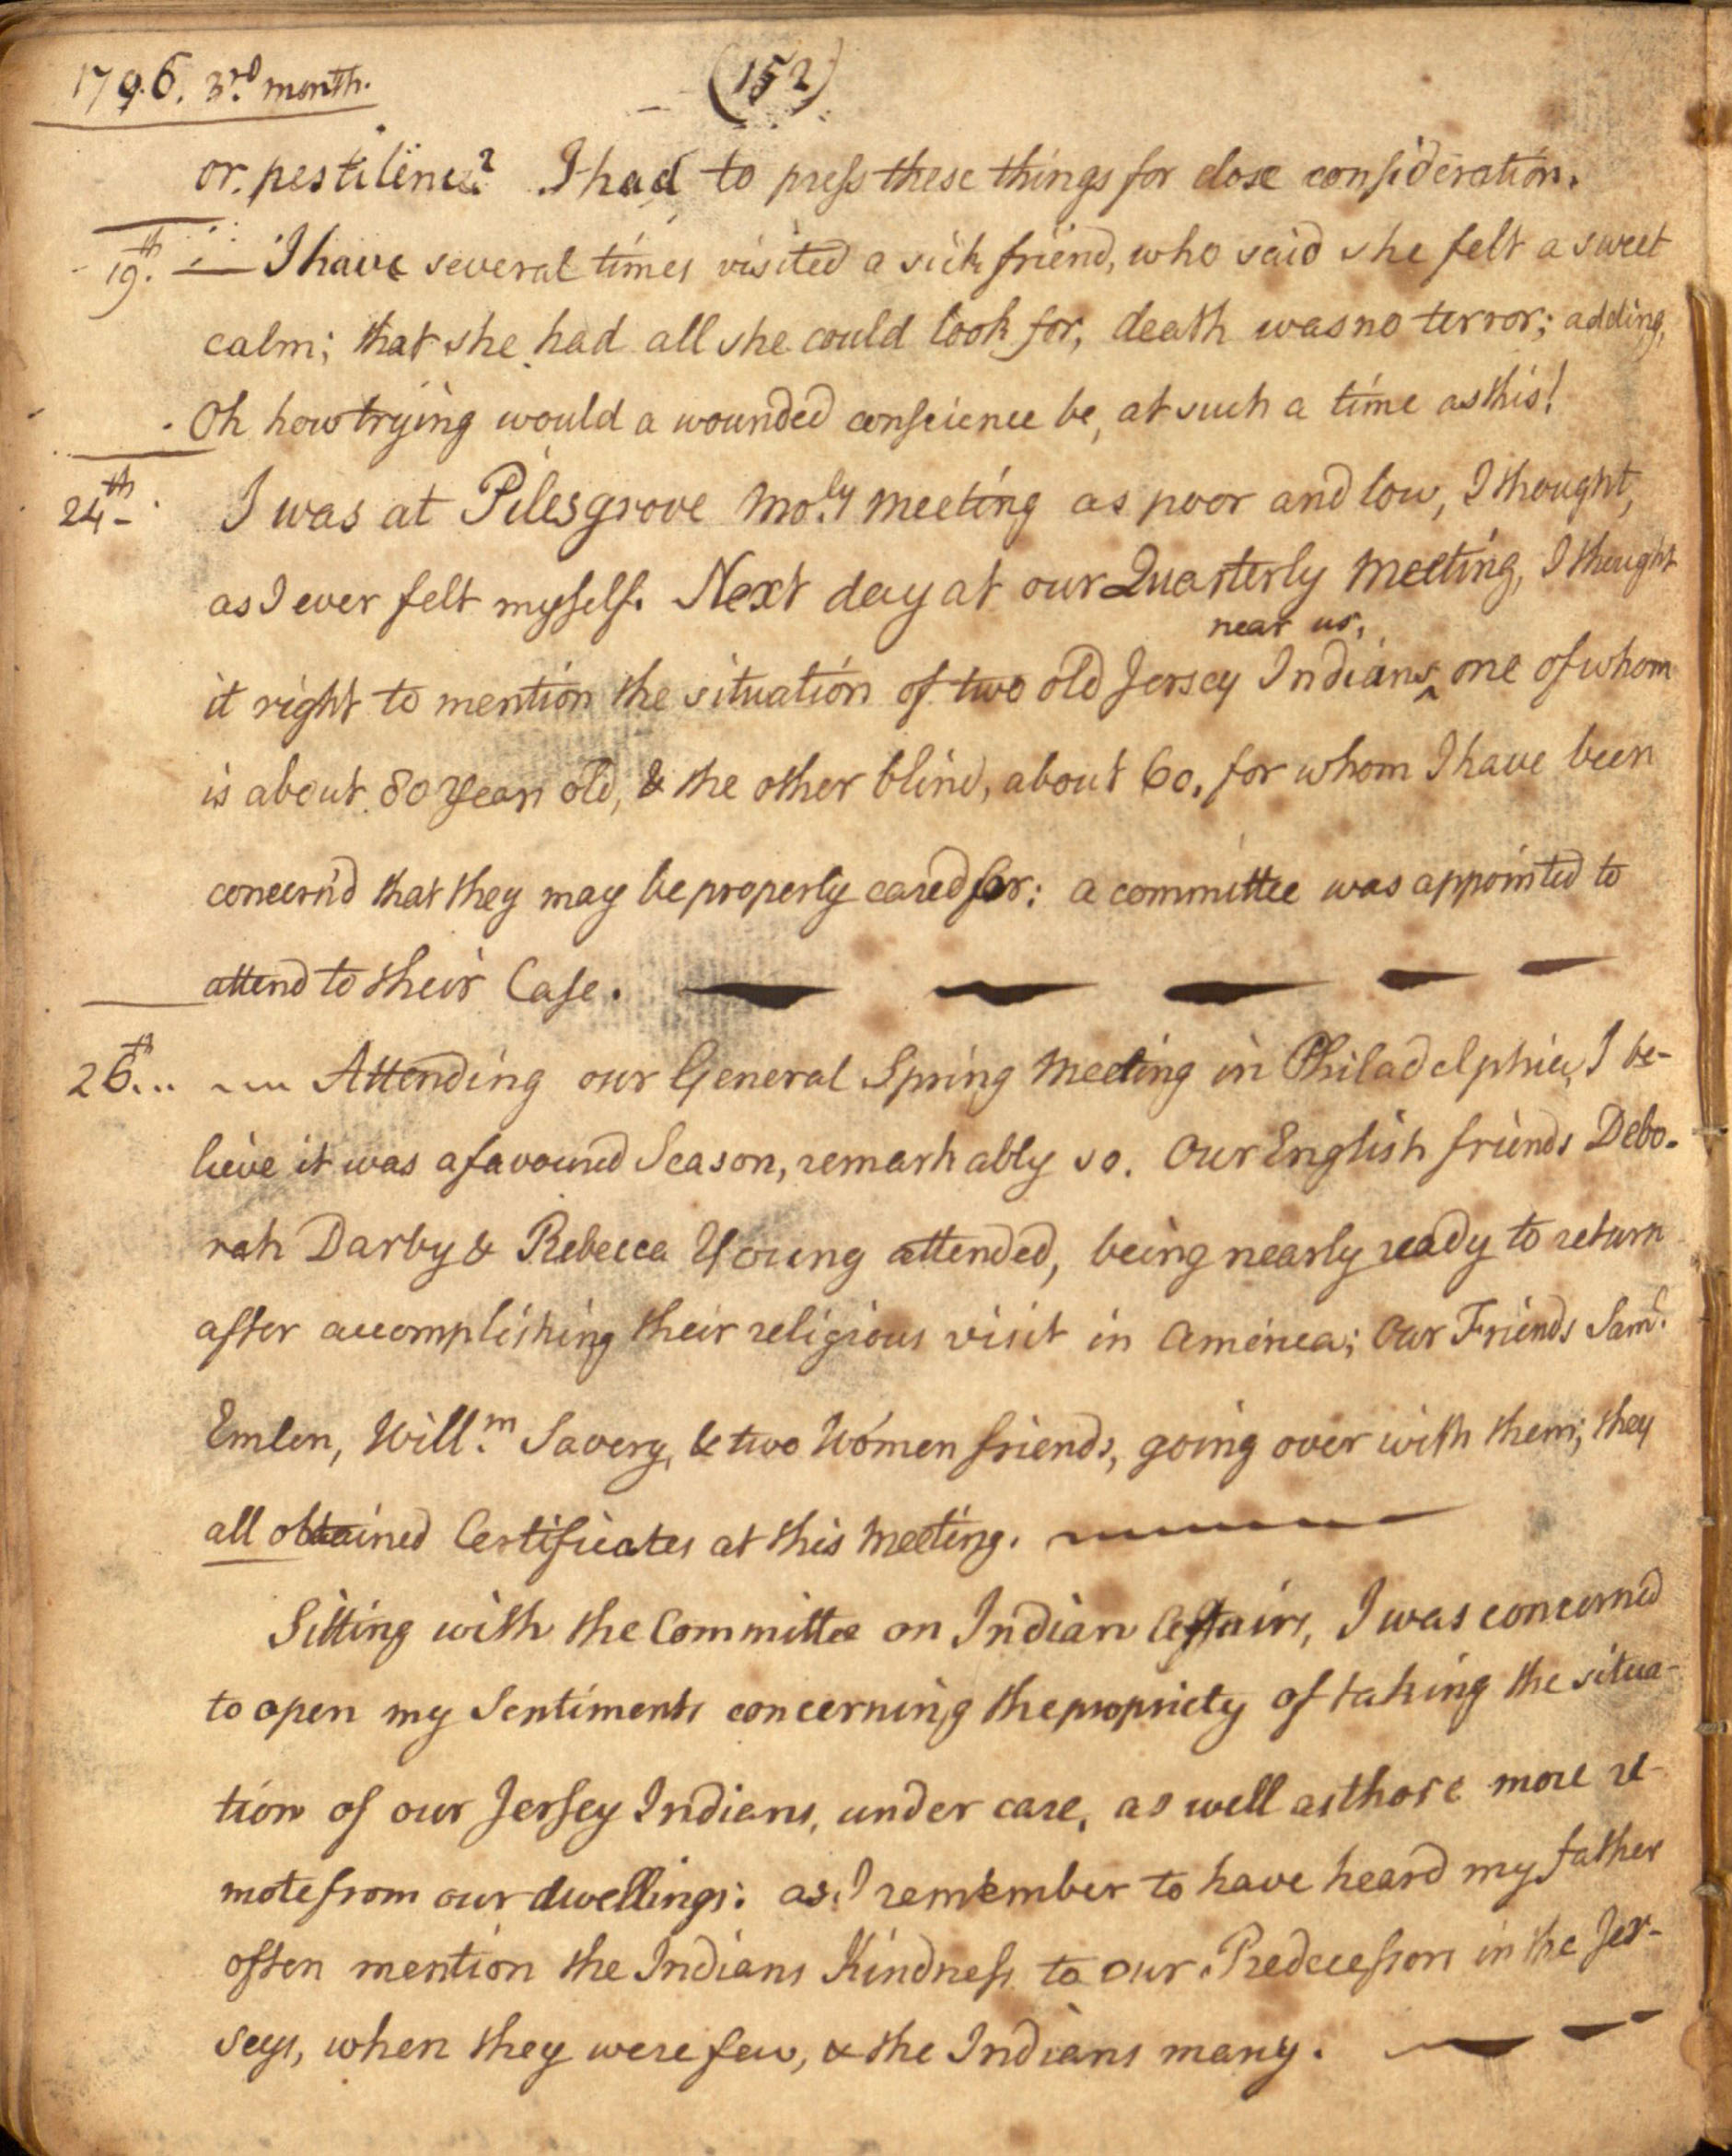 1796. 3rd month.
(152)
or pestilence? I had to press these things for close consideration.
19th. — I have several times visited a sick friend, who said she felt a sweet
calm; that she had all she could look for, death was no terror; adding,
Oh how trying would a wounded conscience be, at such a time as this!
24th I was at Pilesgrove Moly. Meeting as poor and low, I thought,
as I ever felt myself. Next day at our Quarterly Meeting, I thought
near us,
it right to mention the situation of two old Jersey Indians ^ one of whom
is about 80 years old, & the other blind, about 60, for whom I have been
concern'd that they may be properly cared for: a committee was appointed to
attend to their Case.
26th... Attending our General Spring Meeting in Philadelphia, I be-
lieve it was a favoured Season, remarkably so. Our English friends Debo-
rah Darby & Rebecca Young attended, being nearly ready to return
after accomplishing their religious visit in America; Our Friends Saml.
Emlen, Willm. Savery, & two Women friends, going over with them; they
all obtained Certificates at this Meeting.
Sitting with the Committee on Indian Affairs, I was concerned
to open my Sentiments concerning the propriety of taking the situa-
tion of our Jersey Indians, under care, as well as those more re-
mote from our dwellings: as I remember to have heard my father
often mention the Indians Kindness to our Predecessors in the Jer-
seys, when they were few, & the Indians many.